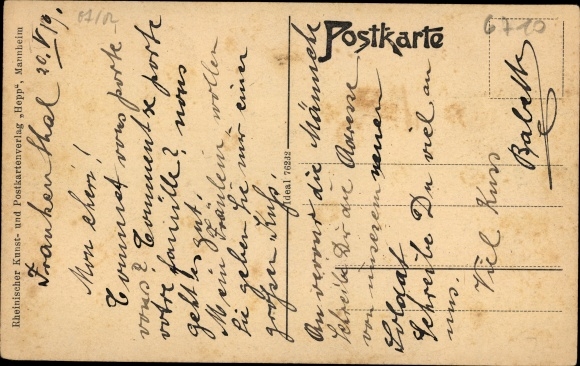 Postkarte
Rheinischer Kunst- und Postkartenverlag „Hepp", Mannheim
Ideal 76232
Frankenthal 20. V. 19.
Mon chéri!
Comment vous porte-
vous? Comment se porte
votre famille? nous
geht es gut.
Mein Fräulein wollen
Sie geben Sie mir einer
großen Kuß.
Au revoir die Männick
Schreibe Dir die Adresse
von unserem neuen
Soldat
Schreibe Du viel an
uns.
Viel Kuss
Babette